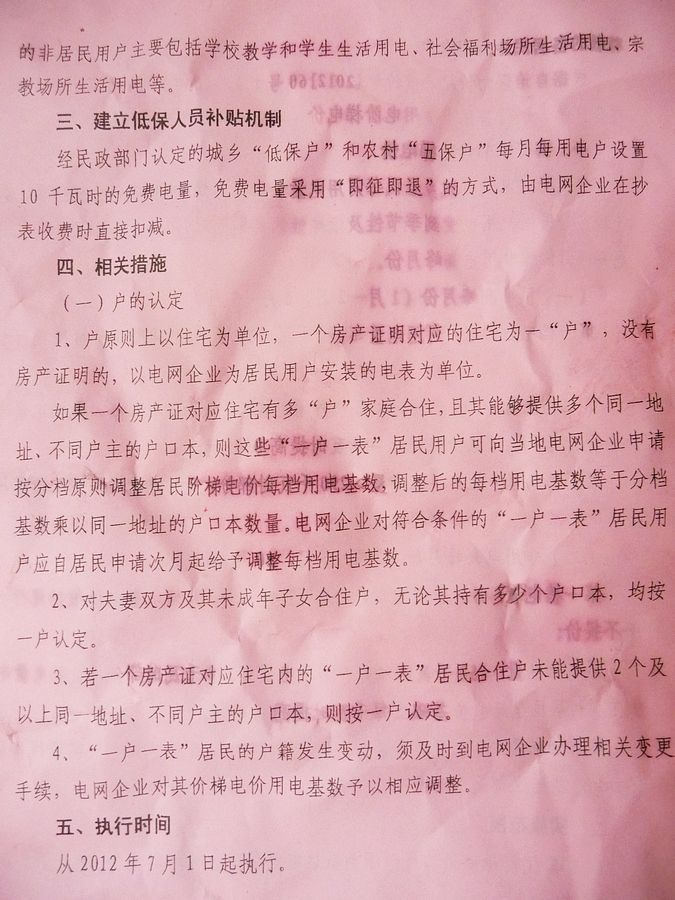 的非居民用户主要包括学校教学和学生生活用电、社会福利场所生活用电、宗
教场所生活用电等。
三、建立低保人员补贴机制
经民政部门认定的城乡“低保户”和农村“五保户”每月每用电户设置
10 千瓦时的免费电量，免费电量采用“即征即退”的方式，由电网企业在抄
表收费时直接扣减。
四、相关措施
（一）户的认定
1、户原则上以住宅为单位，一个房产证明对应的住宅为一“户”，没有
房产证明的，以电网企业为居民用户安装的电表为单位。
如果一个房产证对应住宅有多“户”家庭合住，且其能够提供多个同一地
址、不同户主的户口本，则这些“一户一表”居民用户可向当地电网企业申请
按分档原则调整居民阶梯电价每档用电基数，调整后的每档用电基数等于分档
基数乘以同一地址的户口本数量。电网企业对符合条件的“一户一表”居民用
户应自居民申请次月起给予调整每档用电基数。
2、对夫妻双方及其未成年子女合住户，无论其持有多少个户口本，均按
一户认定。
3、若一个房产证对应住宅内的“一户一表”居民合住户未能提供 2 个及
以上同一地址、不同户主的户口本，则按一户认定。
4、“一户一表”居民的户籍发生变动，须及时到电网企业办理相关变更
手续，电网企业对其价梯电价用电基数予以相应调整。
五、执行时间
从 2012 年 7 月 1 日起执行。